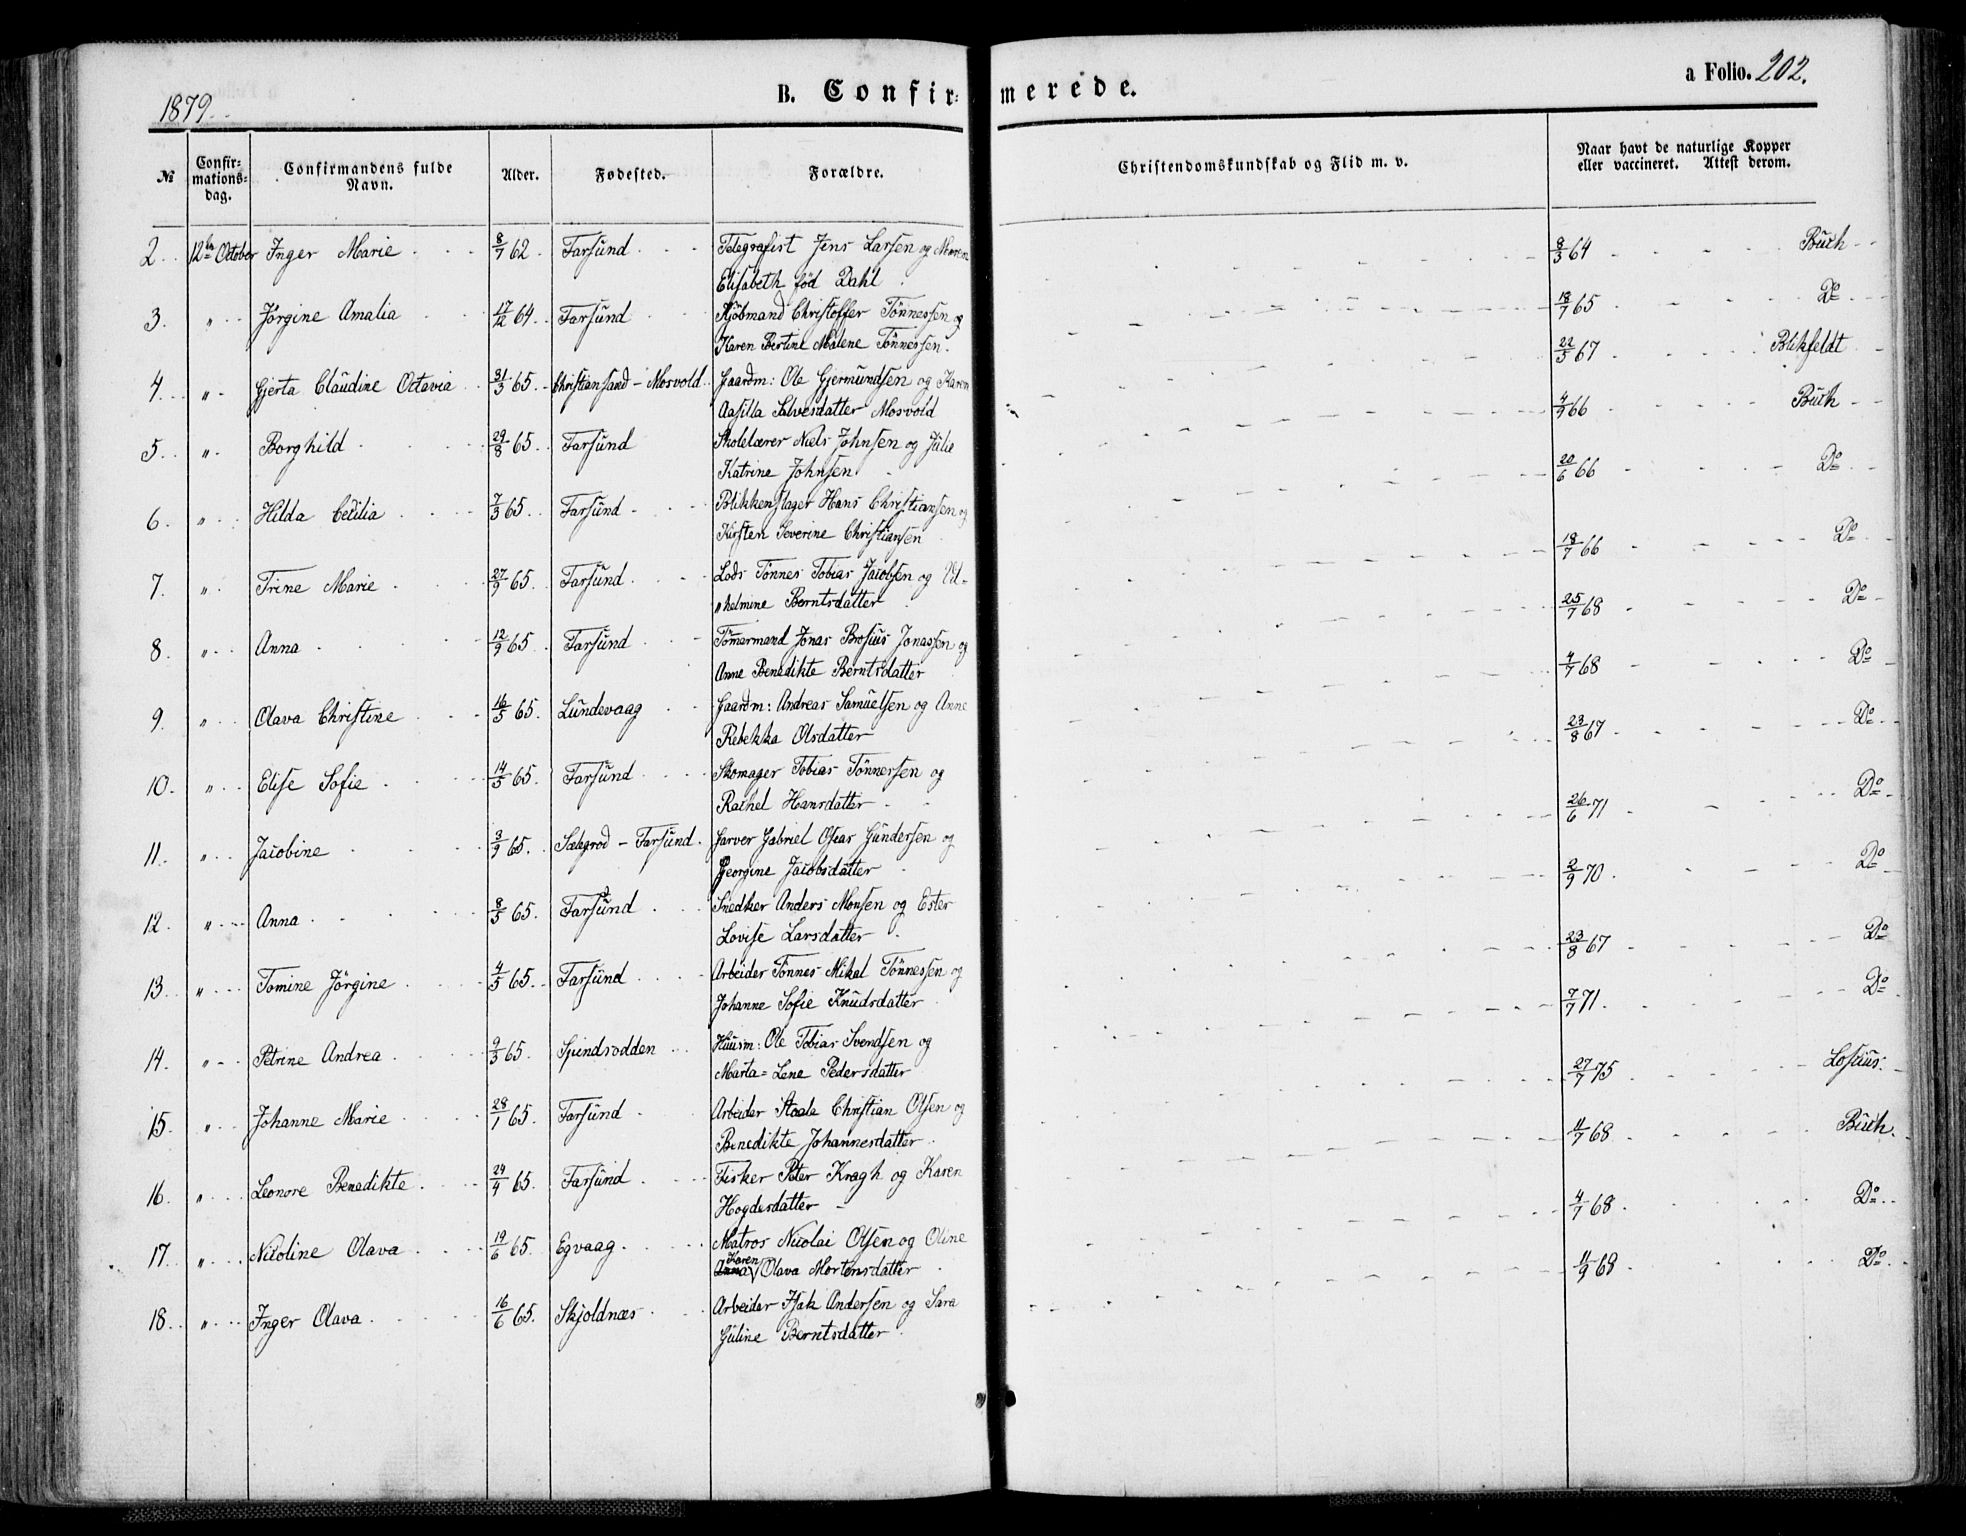 1879.
B. Confirmerede.
a Folio. 202.
№ Confirmationsdag. Confirmandens fulde Navn. Alder. Fødested. Forældre. Christendomskundskab og Flid m. v. Naar havt de naturlige Kopper eller vaccineret. Attest derom.
2 12te October Inger Marie 8/7 62 Farsund Telegrafist Jens Larsen og Maren 8/3 64 Buch
Elisabeth fød Dahl
3. " Jørgine Amalia 17/12 64 Farsund Kjøbmand Christoffer Tønnessen og 18/7 65 Do
Karen Bertine Malene Tønnessen.
4. " Gjerta Claudine Octavia 31/3 65 Christiansand - Mosvold Gaardm: Ole Gjermundsen og Karen 22/5 67 Blikfeldt
Aasilla Salvesdatter Mosvold
5. " Borghild 29/8 65 Farsund Skolelærer Niels Johnsen og Julie 4/7 66 Buch
Katrine Johnsen
6. " Hilda Cecilia 7/3 65 Farsund Blikkenslager Hans Christiansen og 20/6 66 Do
Kirsten Severine Christiansen
7. " Trine Marie 27/9 65 Farsund Lods Tønnes Tobias Jacobsen og Vil-
"helmine Berntsdatter 18/7 66 Do
8. " Anna 12/9 65 Farsund Tømmermand Jonas Brosius Jonassen og 25/7 68 Do
Anne Benedikte Berntsdatter
9. " Olava Christine 16/5 65 Lundevaag Gaardm: Andreas Samuelsen og Anne 4/7 68 Do
Rebekka Olsdatter
10. " Elise Sofie 14/5 65 Farsund Skomager Tobias Tønnessen og 23/8 67 Do
Rachel Hansdatter
11. " Jacobine 3/9 65 Farsund Farver Gabriel Oscar Gundersen og 26/6 71 Do
Georgine Jacobsdatter
12. " Anna 8/5 65 Farsund Snedker Anders Monsen og Ester 2/9 70 Do
Lovise Larsdatter
13. " Tomine Jørgine 4/5 65 Farsund Arbeider Tønnes Mikal Tønnessen og 23/8 67 Do
Johanne Sofie Knudsdatter
14. " Petrine Andrea 9/3 65 Spindsodden Huusm: Ole Tobias Svendsen og 7/7 71 Do
Marta-Lene Pedersdatter
15. " Johanne Marie 28/1 65 Farsund Arbeider Staale Christian Olsen og 27/7 75 Losius
Benedikte Johannesdatter
16. " Leonore Benedikte 24/4 65 Farsund Fisker Peter Kragh og Karen 11/7 68 Buch
Hogdesdatter
17. " Nicoline Olava 19/6 65 Egvaag Matros Nicolai Olsen og Oline 4/7 68 Do
Anna Karen Olava Mortensdatter
18. " Inger Olava 16/6 65 Skjoldnæs Arbeider Isak Andersen og Sara 11/9 68 Do
Guline Berntsdatter